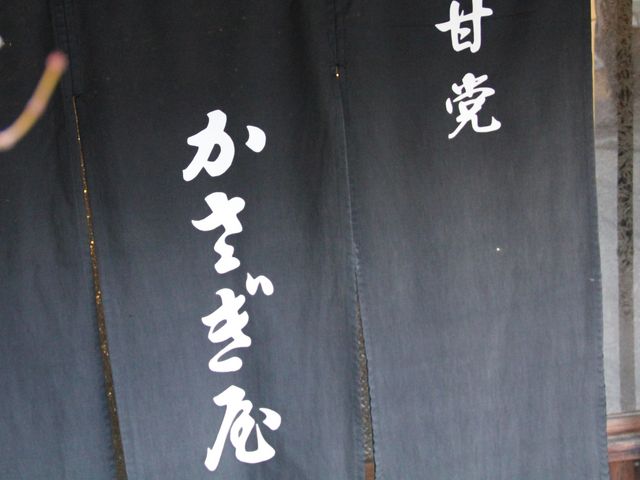 甘党
かさぎ屋